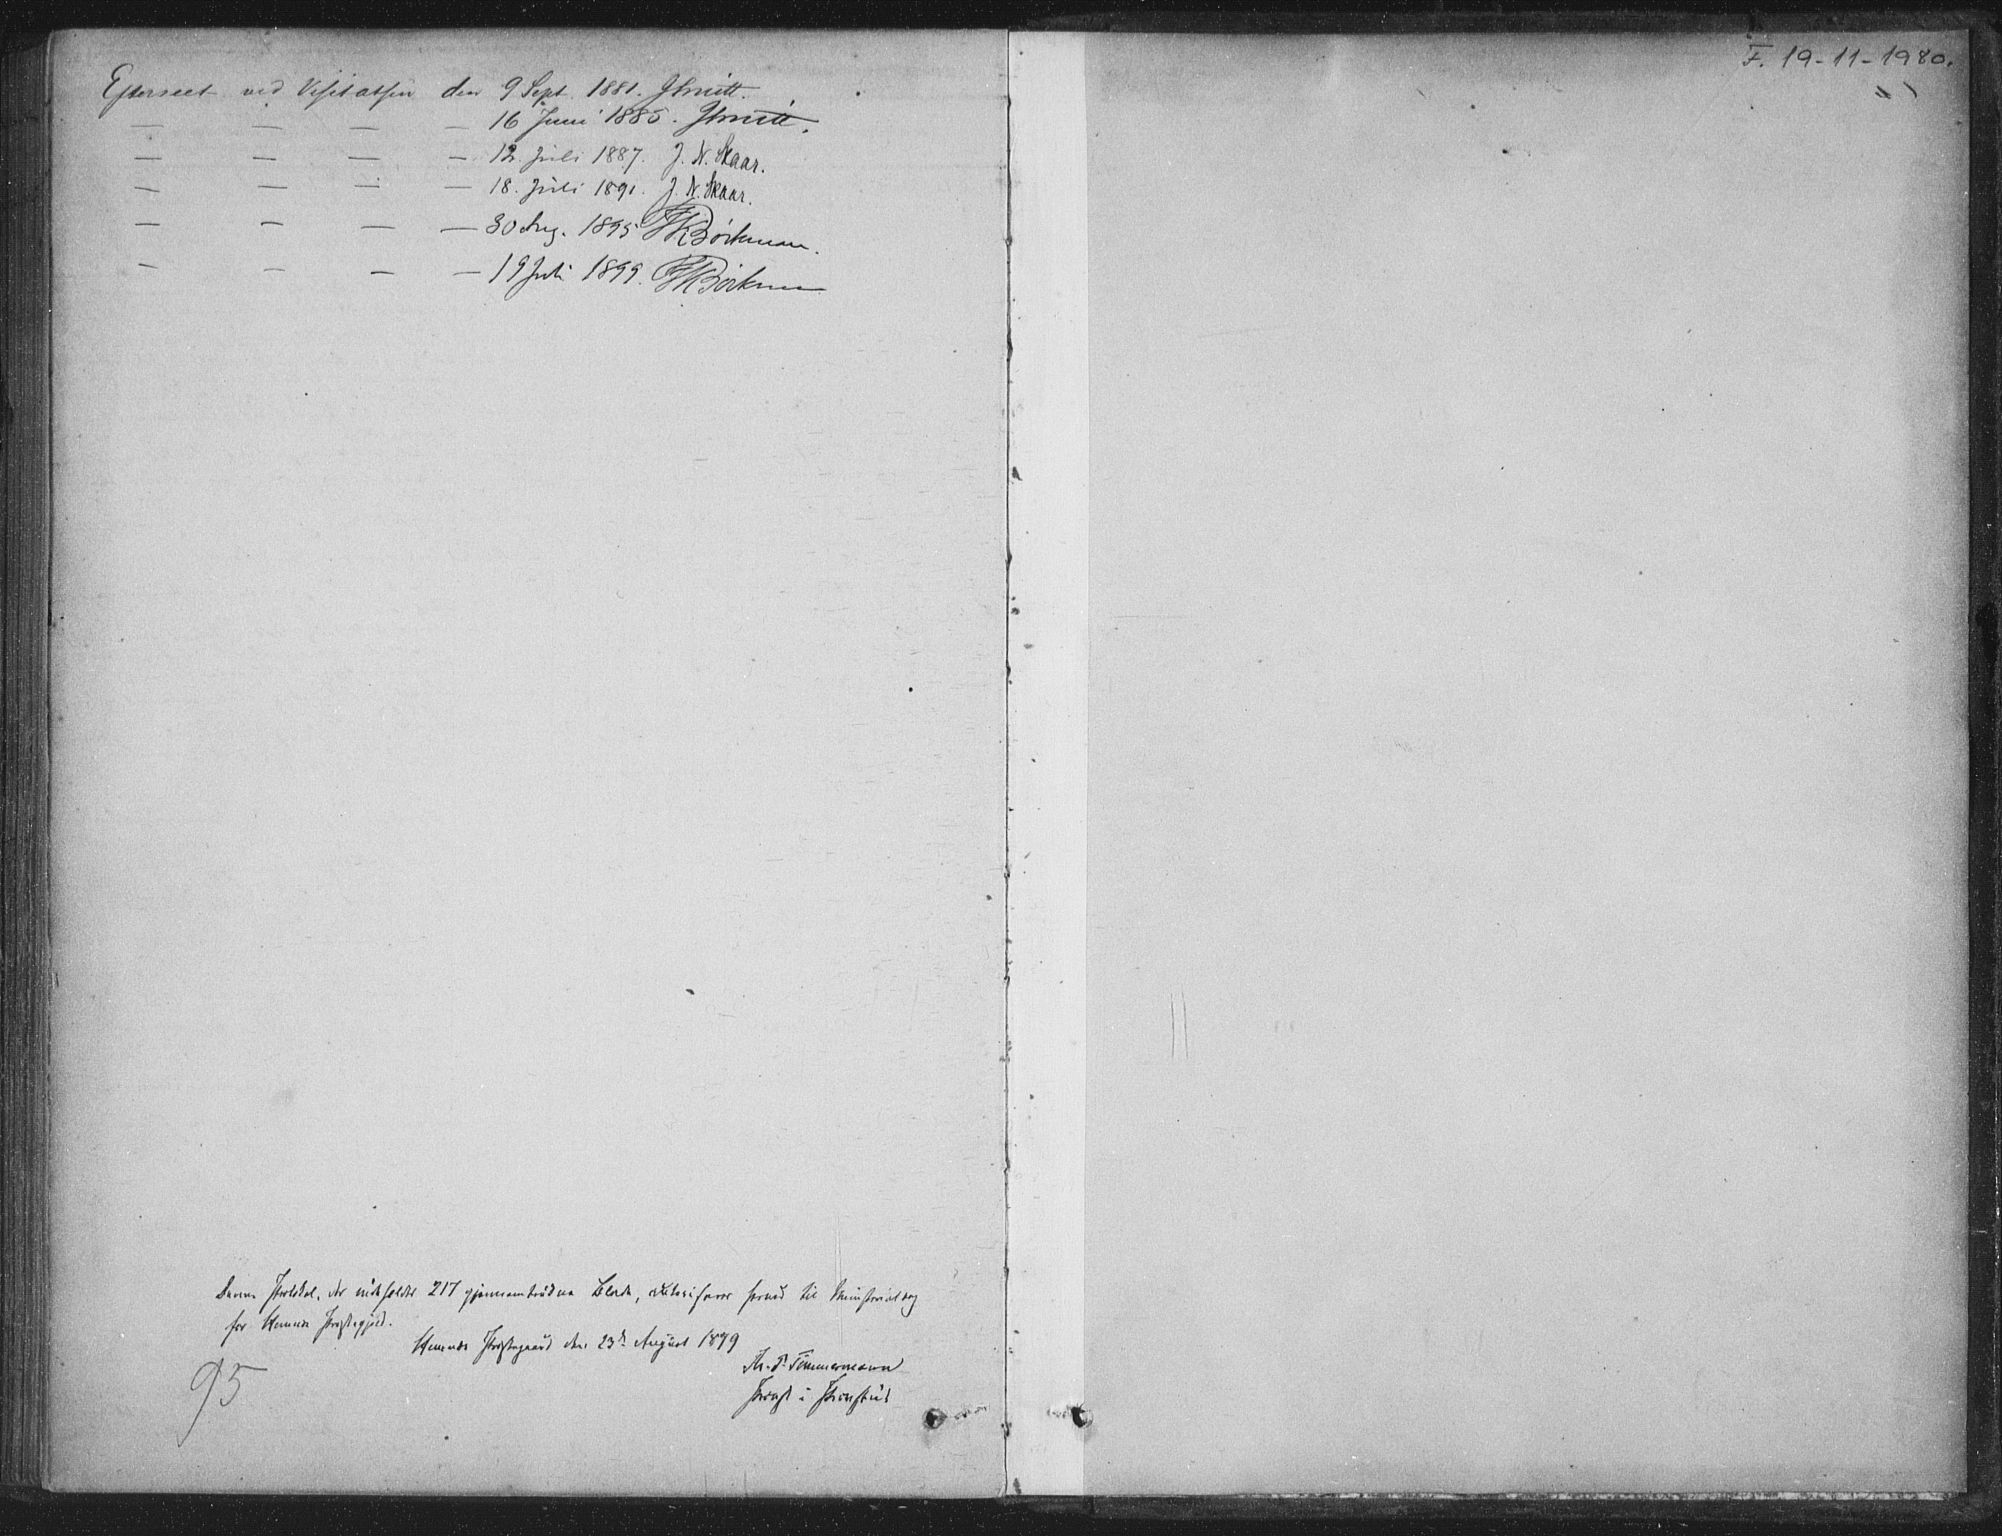 Efterseet ved Visitatsen den 9 Sept. 1881. JSmitt.
— — — — 16 Juni 1885. JSmitt.
— — — — 12. Juli 1887. J. N. Skaar.
— — — — 18. Juli 1891. J. N. Skaar.
— — — — 30 Aug. 1895 JKBöckman.
— — — — 19 Juli 1899. JKBöckman
Denne Protokol, der indeholder 217 gjennemtrukne Blade, autoriseres herved til Ministerialbog
for Hevne Præstegjeld.
Præstegaard den 23de August 1879
Th. P. Timmermann
Provst i
95
F. 19-11-1980.